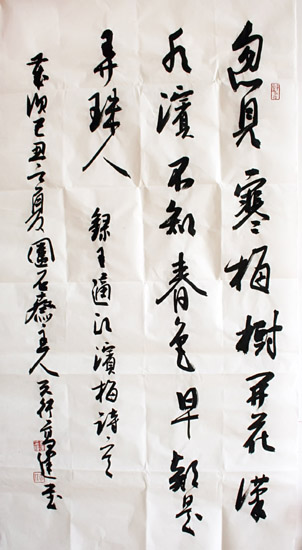 忽見寒梅樹開花漢
水濱不知春色早疑是
弄珠人 錄王適江濱梅詩
歲次己丑之夏園石齋主人